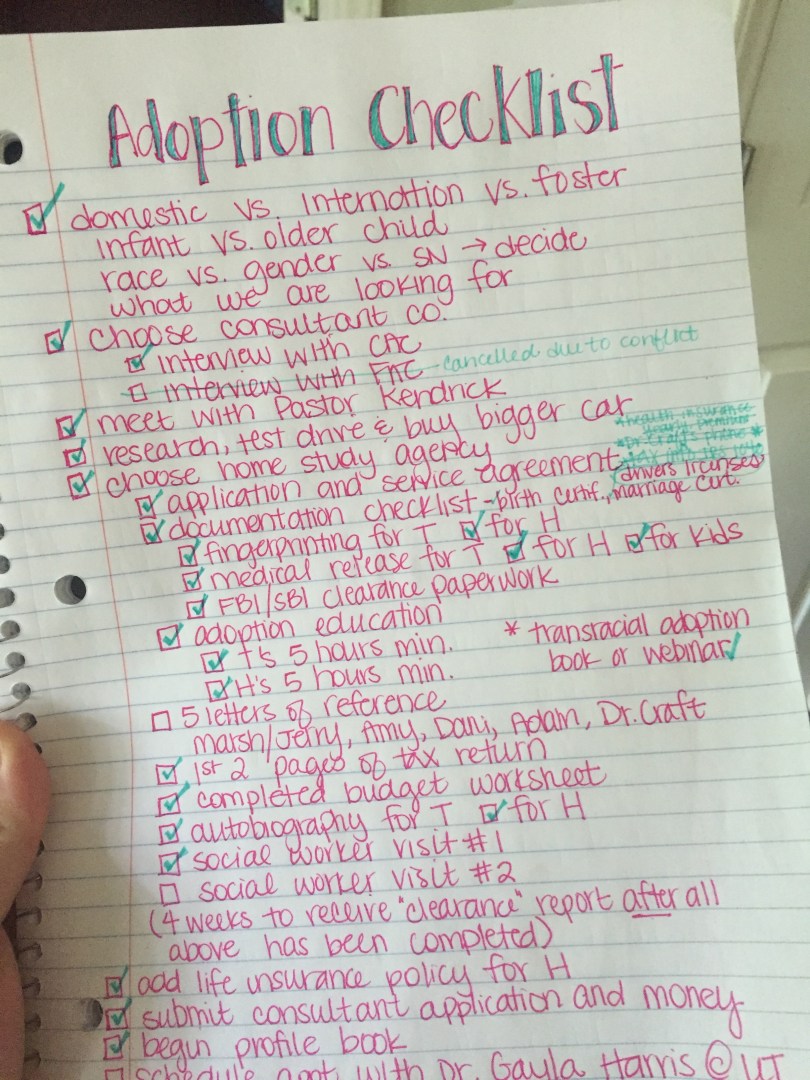 Adoption Checklist
domestic vs. Internation vs. foster
infant vs. older child
race vs. gender vs. SN → decide
what we are looking for
choose consultant co.
interview with CAC
interview with FAC - cancelled due to conflict
meet with Pastor Kendrick
research, test drive & buy bigger car
choose home study agency
*health insurance
application and service agreement
drivers licenses
documentation checklist - birth certif., marriage cert.
fingerprinting for T for H
medical release for T for H for kids
FBI/SBI clearance paperwork
adoption education
T's 5 hours min.
H's 5 hours min.
* transracial adoption
book or webinar
5 letters of reference
Marsh/Jerry, Amy, Dani, Adam, Dr. Craft
1st 2 pages of tax return
completed budget worksheet
autobiography for T for H
social worker visit #1
social worker visit #2
(4 weeks to receive "clearance" report after all
above has been completed)
add life insurance policy for H
submit consultant application and money
begin profile book
schedule appt. with Dr. Gayla Harris @ UT